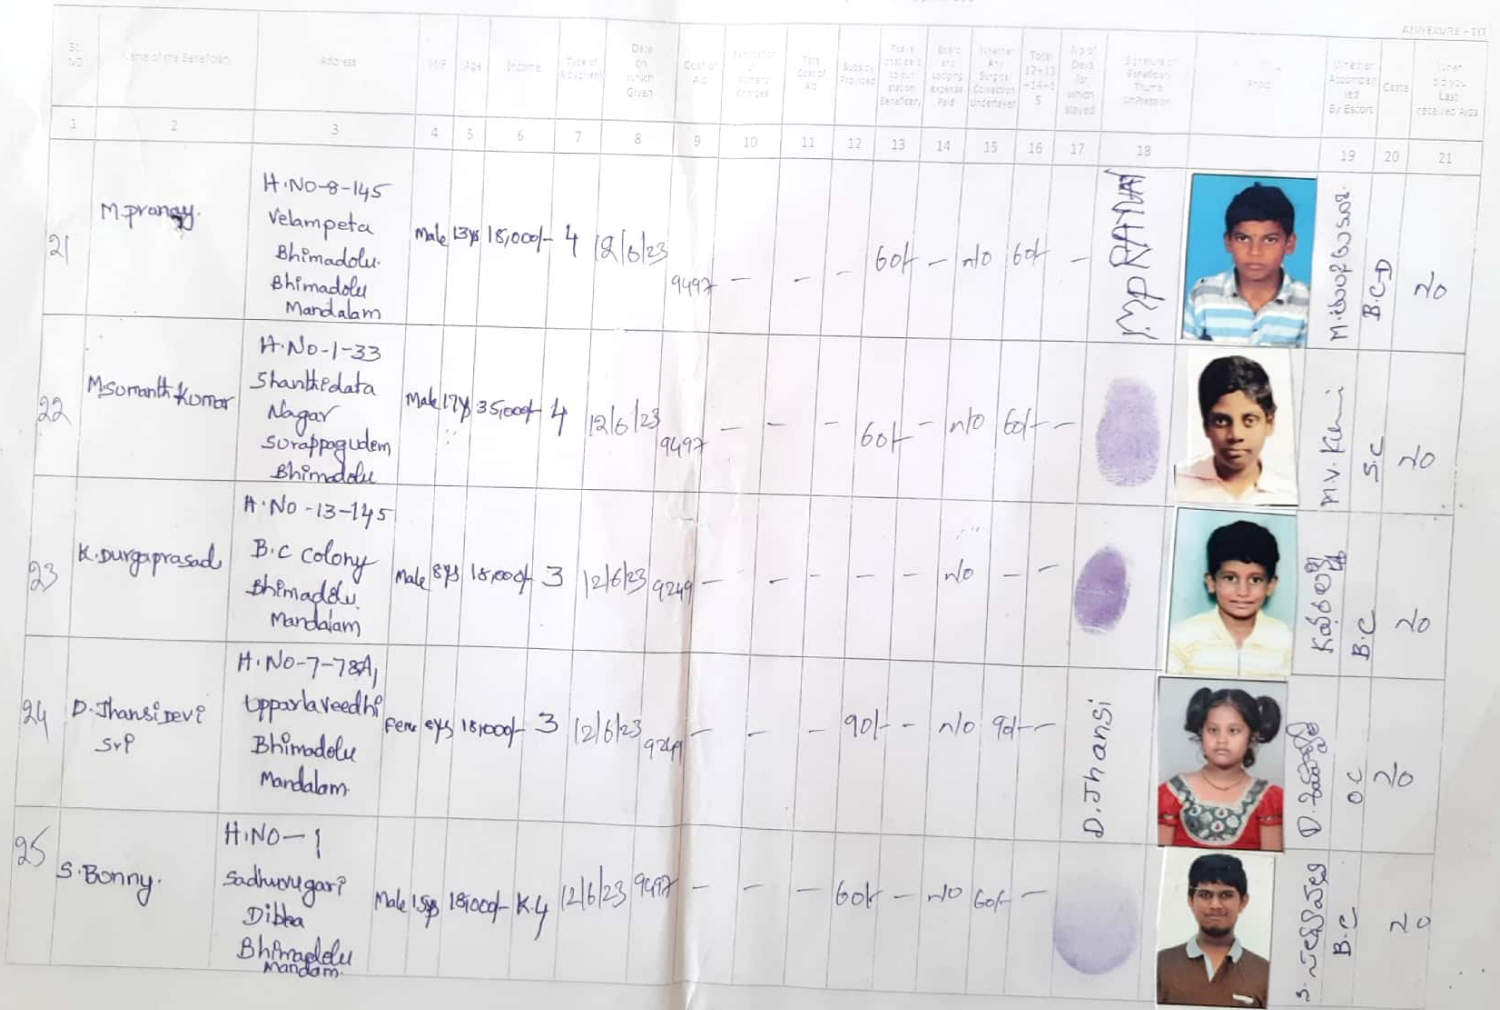 ANNEXURE - III
Sl. NO
Name of the Beneficiary
Address
M/F
Age
Income
Type of Aid (given)
Date on which Given
Cost of Aid
Total Cost of Aid
Subsidy Provided
Board and Lodging expense Paid
Whether Any Surgical Correction Undertaken
Total 12+13+14+15
No of Days for which stayed
Signature of Beneficiary Thumb Impression
Photo
Whether Accompanied By Escort
Caste
1 2 3 4 5 6 7 8 9 10 11 12 13 14 15 16 17 18 19 20 21
21
M.pranay.
H.NO-8-145
Velampeta
Bhimadolu.
Bhimadolu
Mandalam
Male 13ys 18,000/- 4 12/6/23 9497 - - - 60/- - n/o 60/- -
B.C-D
NO
22
M.Sumanth Kumar
H.No-1-33
Shanthidata
Nagar
Surappagudem
Bhimadolu
Male 17ys 35,000/- 4 12/6/23 9497 - - - 60/- - n/o 60/- -
S.C
NO
23
K.Durgaprasad
H.NO-13-145
B.C colony
Bhimadolu.
Mandalam
Male 8ys 18,000/- 3 12/6/23 9249 - - - - - n/o - -
B.C
NO
24
D.Jhansi Devi
Sri
H.NO-7-78A,
Upparlaveedhi
Bhimadolu
Mandalam
Fem 8ys 18,000/- 3 12/6/23 9249 - - - 90/- - n/o 90/- -
D.Jhansi
OC
NO
25
S.Bonny.
H.NO-1
Sadhuvugari
Dibba
Bhimadolu
Mandam.
Male 15ys 18,000/- K.4 12/6/23 9497 - - - 60/- - n/o 60/- -
B.C
NO